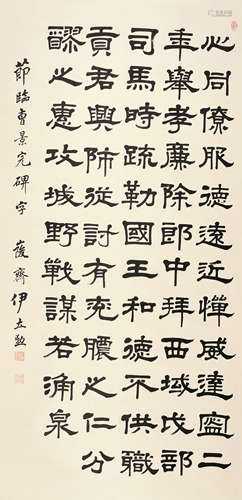 心同僚服德遠近憚威建寧二
年舉孝廉除郎中拜西域戊部
司馬時疏勒國王和德不供職
貢君興師征討有兗膿之仁分
醪之惠攻城野戰謀若涌泉
節臨曹景完碑字 齋伊立勳